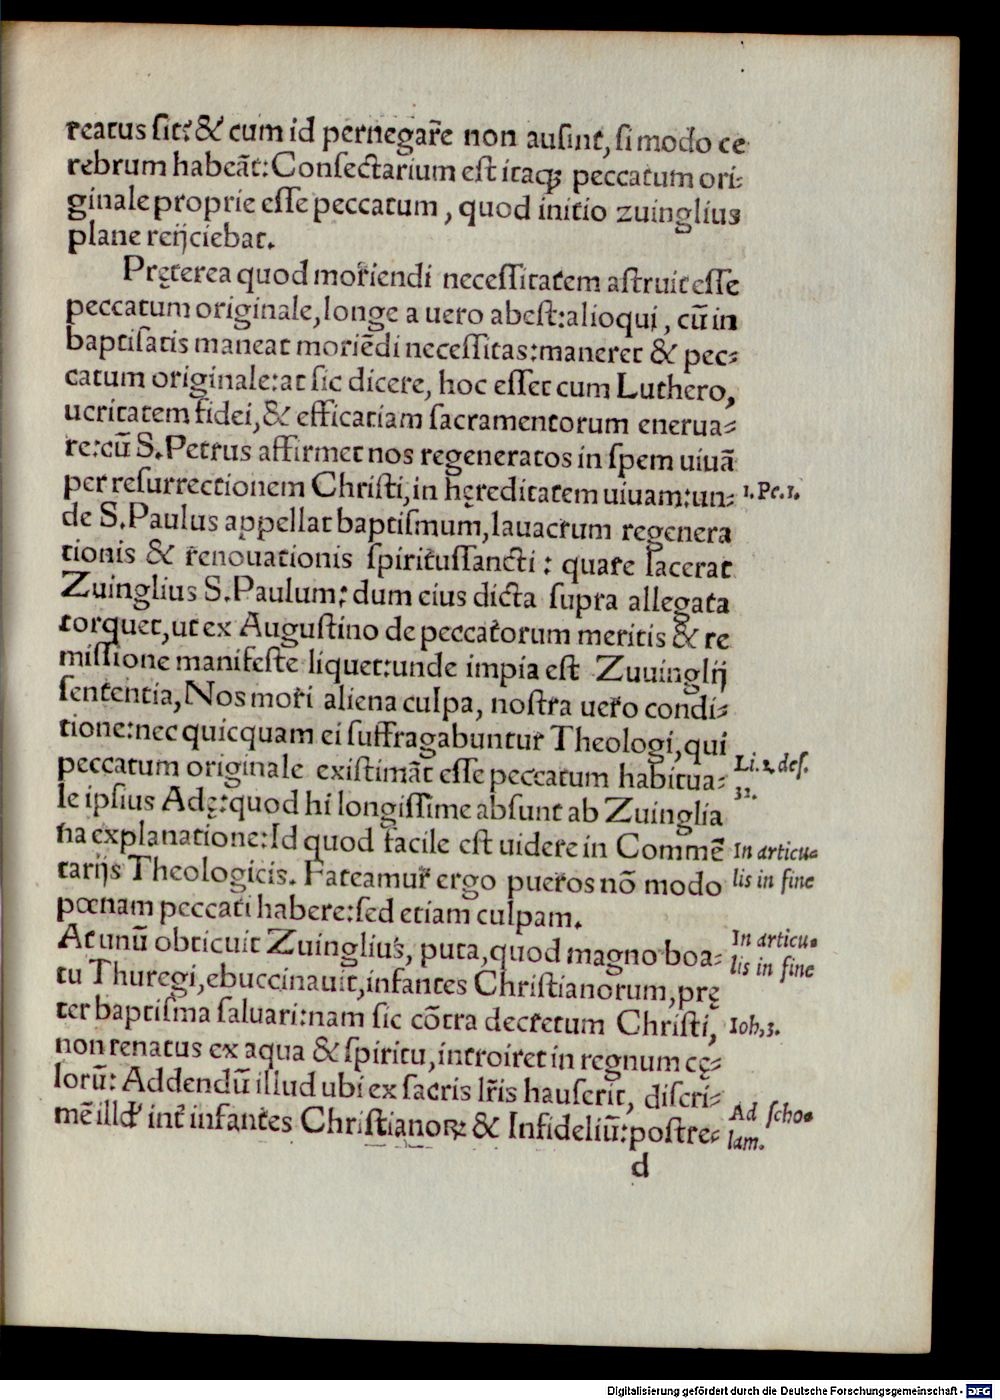 reatus sit? & cum id pernegare non ausint, si modo ce
rebrum habeāt: Consectarium est itaqꝫ peccatum ori-
ginale proprie esse peccatum, quod initio zuinglius
plane reijciebat.
Pręterea quod moriendi necessitatem astruit esse
peccatum originale, longe a uero abest: alioqui, cū in
baptisatis maneat moriēdi necessitas: maneret & pec-
catum originale: at sic dicere, hoc esset cum Luthero,
ueritatem fidei, & efficatiam sacramentorum enerua-
re: cū S. Petrus affirmet nos regeneratos in spem uiuā
per resurrectionem Christi, in hęreditatem uiuam: un- 1. Pe. 1.
de S. Paulus appellat baptismum, lauacrum regenera
tionis & renouationis spiritussancti: quare lacerat
Zuinglius S. Paulum? dum eius dicta supra allegata
torquet, ut ex Augustino de peccatorum meritis & re
missione manifeste liquet: unde impia est Zuuinglij
sententia, Nos mori aliena culpa, nostra uero condi-
tione: nec quicquam ei suffragabuntur Theologi, qui
peccatum originale existimāt esse peccatum habitua- Li. 2. des.
le ipsius Adę: quod hi longissime absunt ab Zuinglia 32.
na explanatione: Id quod facile est uidere in Commē In articu-
tarijs Theologicis. Fateamur ergo pueros nō modo lis in fine
pœnam peccati habere: sed etiam culpam.
At unū obticuit Zuinglius, puta, quod magno boa- In articu-
tu Thuregi, ebuccinauit, infantes Christianorum, prę lis in fine
ter baptisma saluari: nam sic cōtra decretum Christi, Ioh, 3.
non renatus ex aqua & spiritu, introiret in regnum cę-
lorū: Addendū illud ubi ex sacris lr̄is hauserit, discri-
mē illd' int̄ infantes Christianoꝝ & Infideliū: postre- Ad scho-
lam.
d
Digitalisierung gefördert durch die Deutsche Forschungsgemeinschaft - DFG